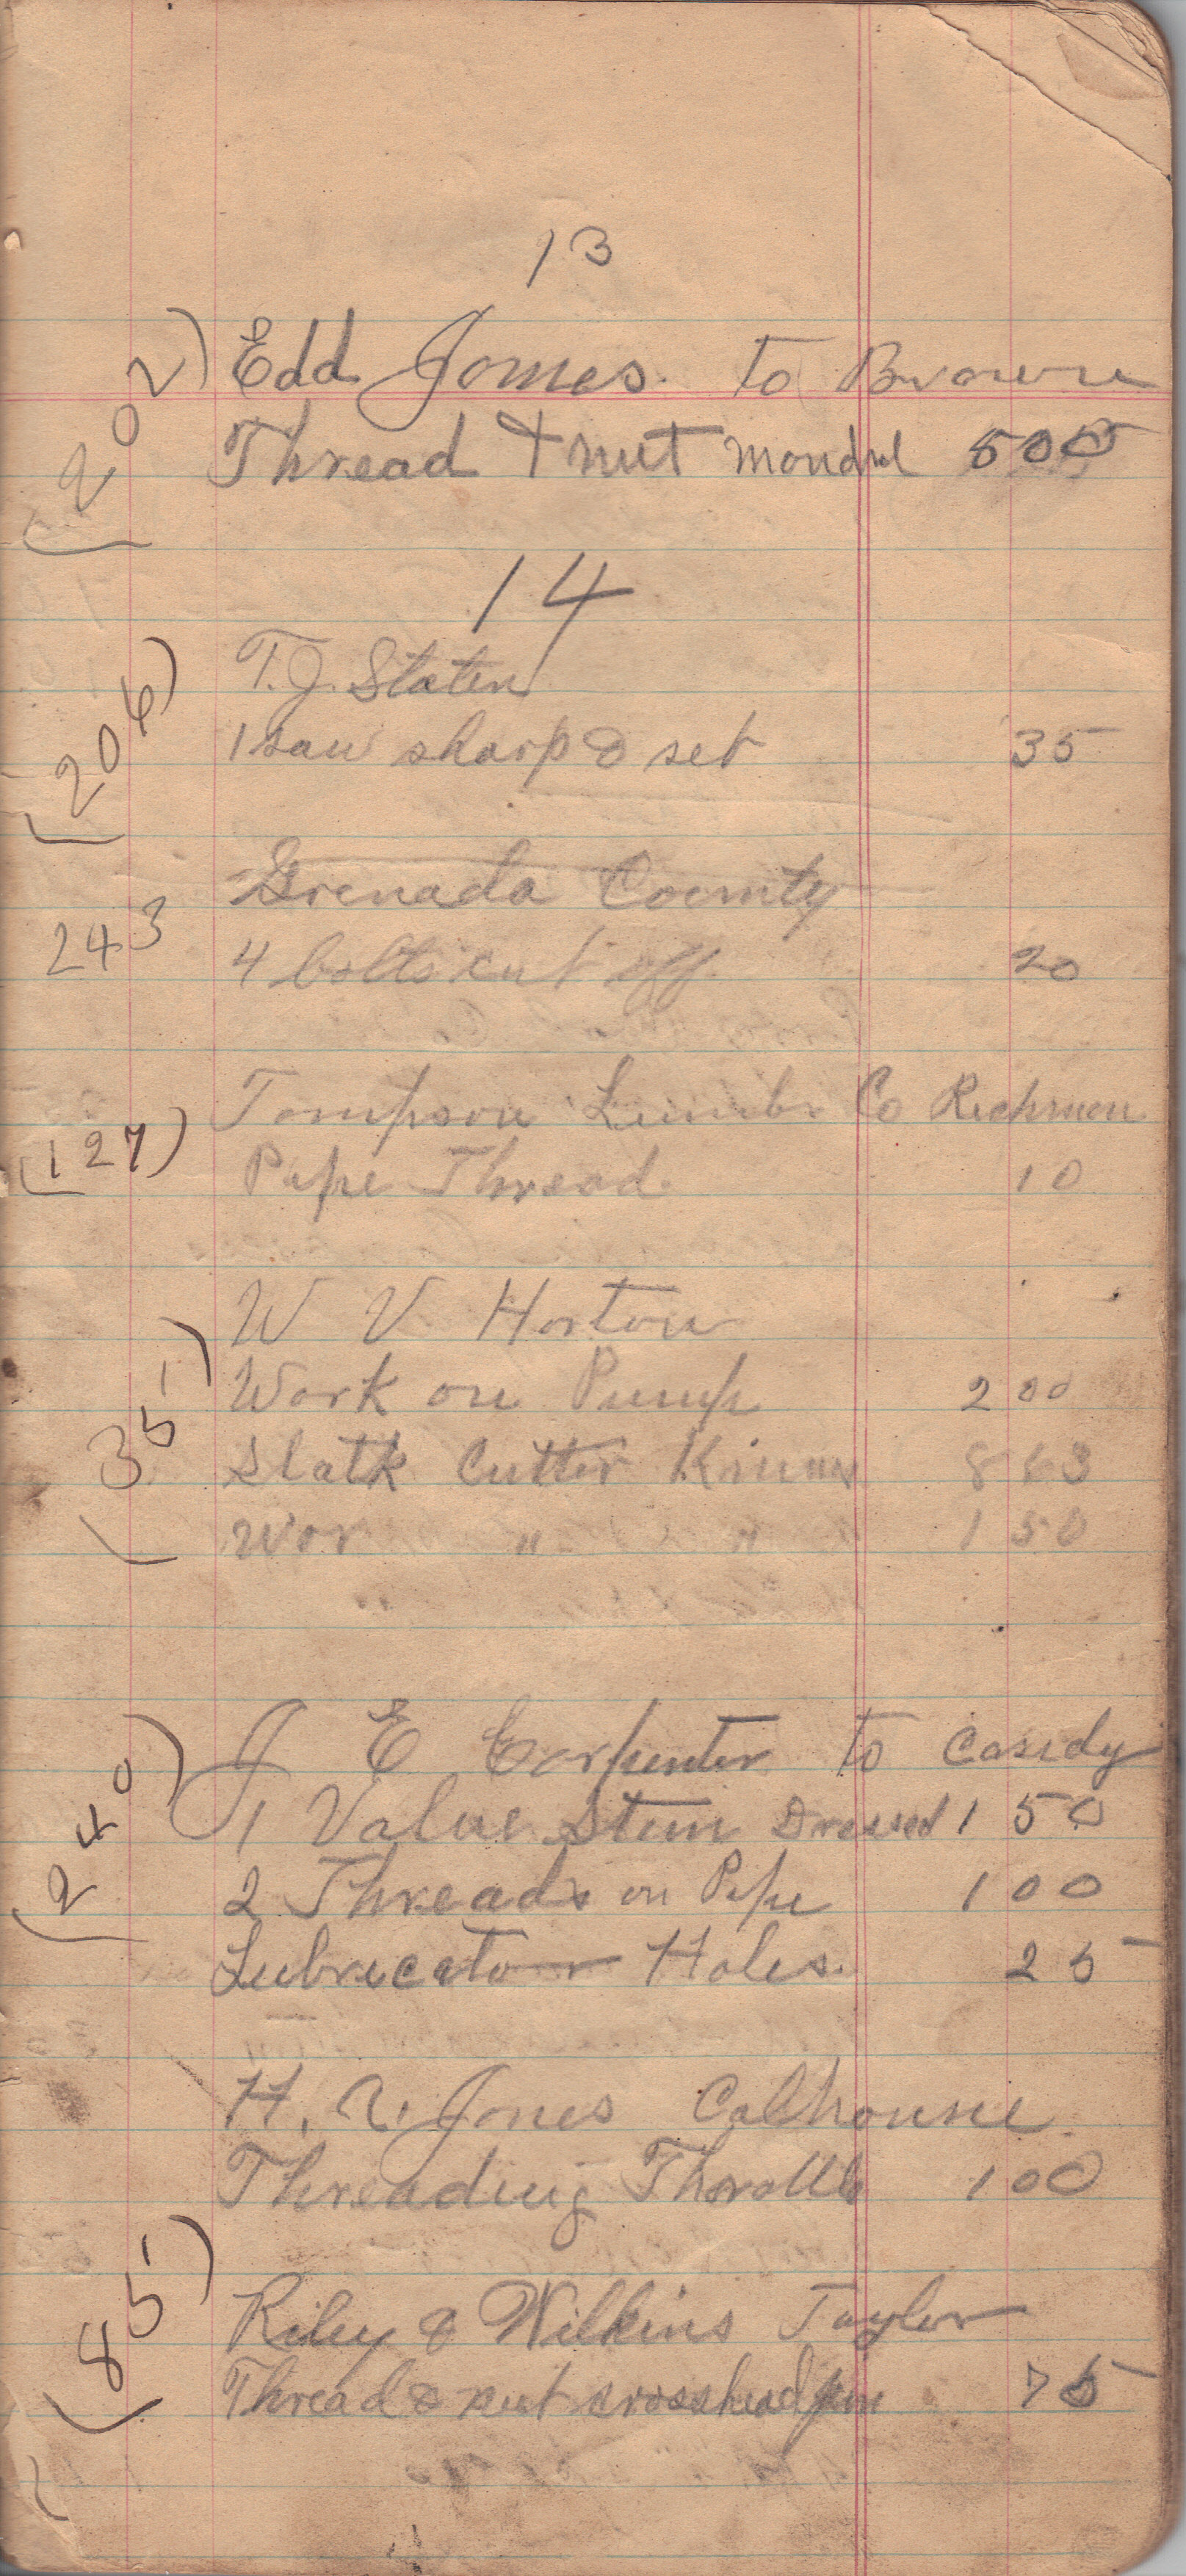 13
(202) Edd Jones. to Browne
Thread + nut mondrel 500
14
T. J. Staten
(206) 1 saw sharp & set 35
Grenada County
243 4 bolts cut off 20
Tompson Lumbr Co Richmen
(127) Pipe Thread 10
W V Horton
(35) Work on Pump 200
Slatk Cutter 863
Wor " " 150
(240) J E Carpenter to Casidy
1 Valve Stem Dressed 1 50
2 Threads on Pipe 100
Lubricator Holes. 25
H. Jones Calhoune
Threading Throttle 100
(85) Riley & Wilkins Taylor
Thread & nut crosshead pin 75